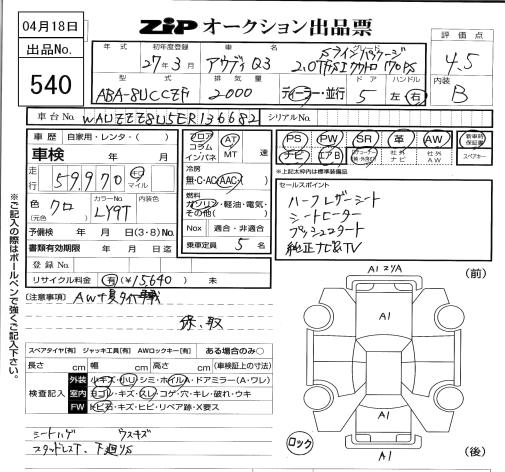 04月18日
ZIP オークション出品票
出品No.
540
年式 初年度登録 車名 グレード 評価点
27年3月 アウディ Q3 Sラインパッケージ 2.0TFSIクワトロ 170PS 4.5
型式 排気量 ドア ハンドル 内装
ABA-8UCCZF 2000 ディーラー・並行 5 左 右 B
車台No. WAUZZZ8U5ER136682 シリアルNo.
車歴 自家用・レンタ・( )
フロア コラム インパネ AT MT 速
PS PW SR 革 AW 新車時保証書
ナビ エアB 社外ナビ 社外AW スペアキー
※上記太枠内は標準装備品
車検 年 月
走行 59,970 キロ マイル
冷房 無・C・AC AAC
燃料 ガソリン・軽油・電気・その他( )
色 クロ (元色 カラーNo. LY9T 内装色
予備検 年 月 日(3・8)No.
Nox 適合・非適合
書類有効期限 年 月 日迄
乗車定員 5 名
セールスポイント
ハーフレザーシート
シートヒーター
プッシュスタート
純正ナビ&TV
登録No.
リサイクル料金 有(¥15640) 未
[注意事項]
保、取
スペアタイヤ[有] ジャッキ工具[有] AWロックキー[有] ある場合のみ○
長さ cm 幅 cm 高さ cm (車検証上の寸法)
検査記入
外装 小キズ・小凹・シミ・ホイル(A・ドアミラー(A・ワレ)
室内 ヨゴレ・キズ・スレ・コゲ・穴・キレ・破れ・ウキ
FW トビ石・キズ・ヒビ・リペア跡・X要ス
シートハゲ ウスキズ
スタッドレスT、下廻りS
※ご記入の際はボールペンで強くご記入下さい。
(前)
A1
A1
A1
A1
ロック
(後)